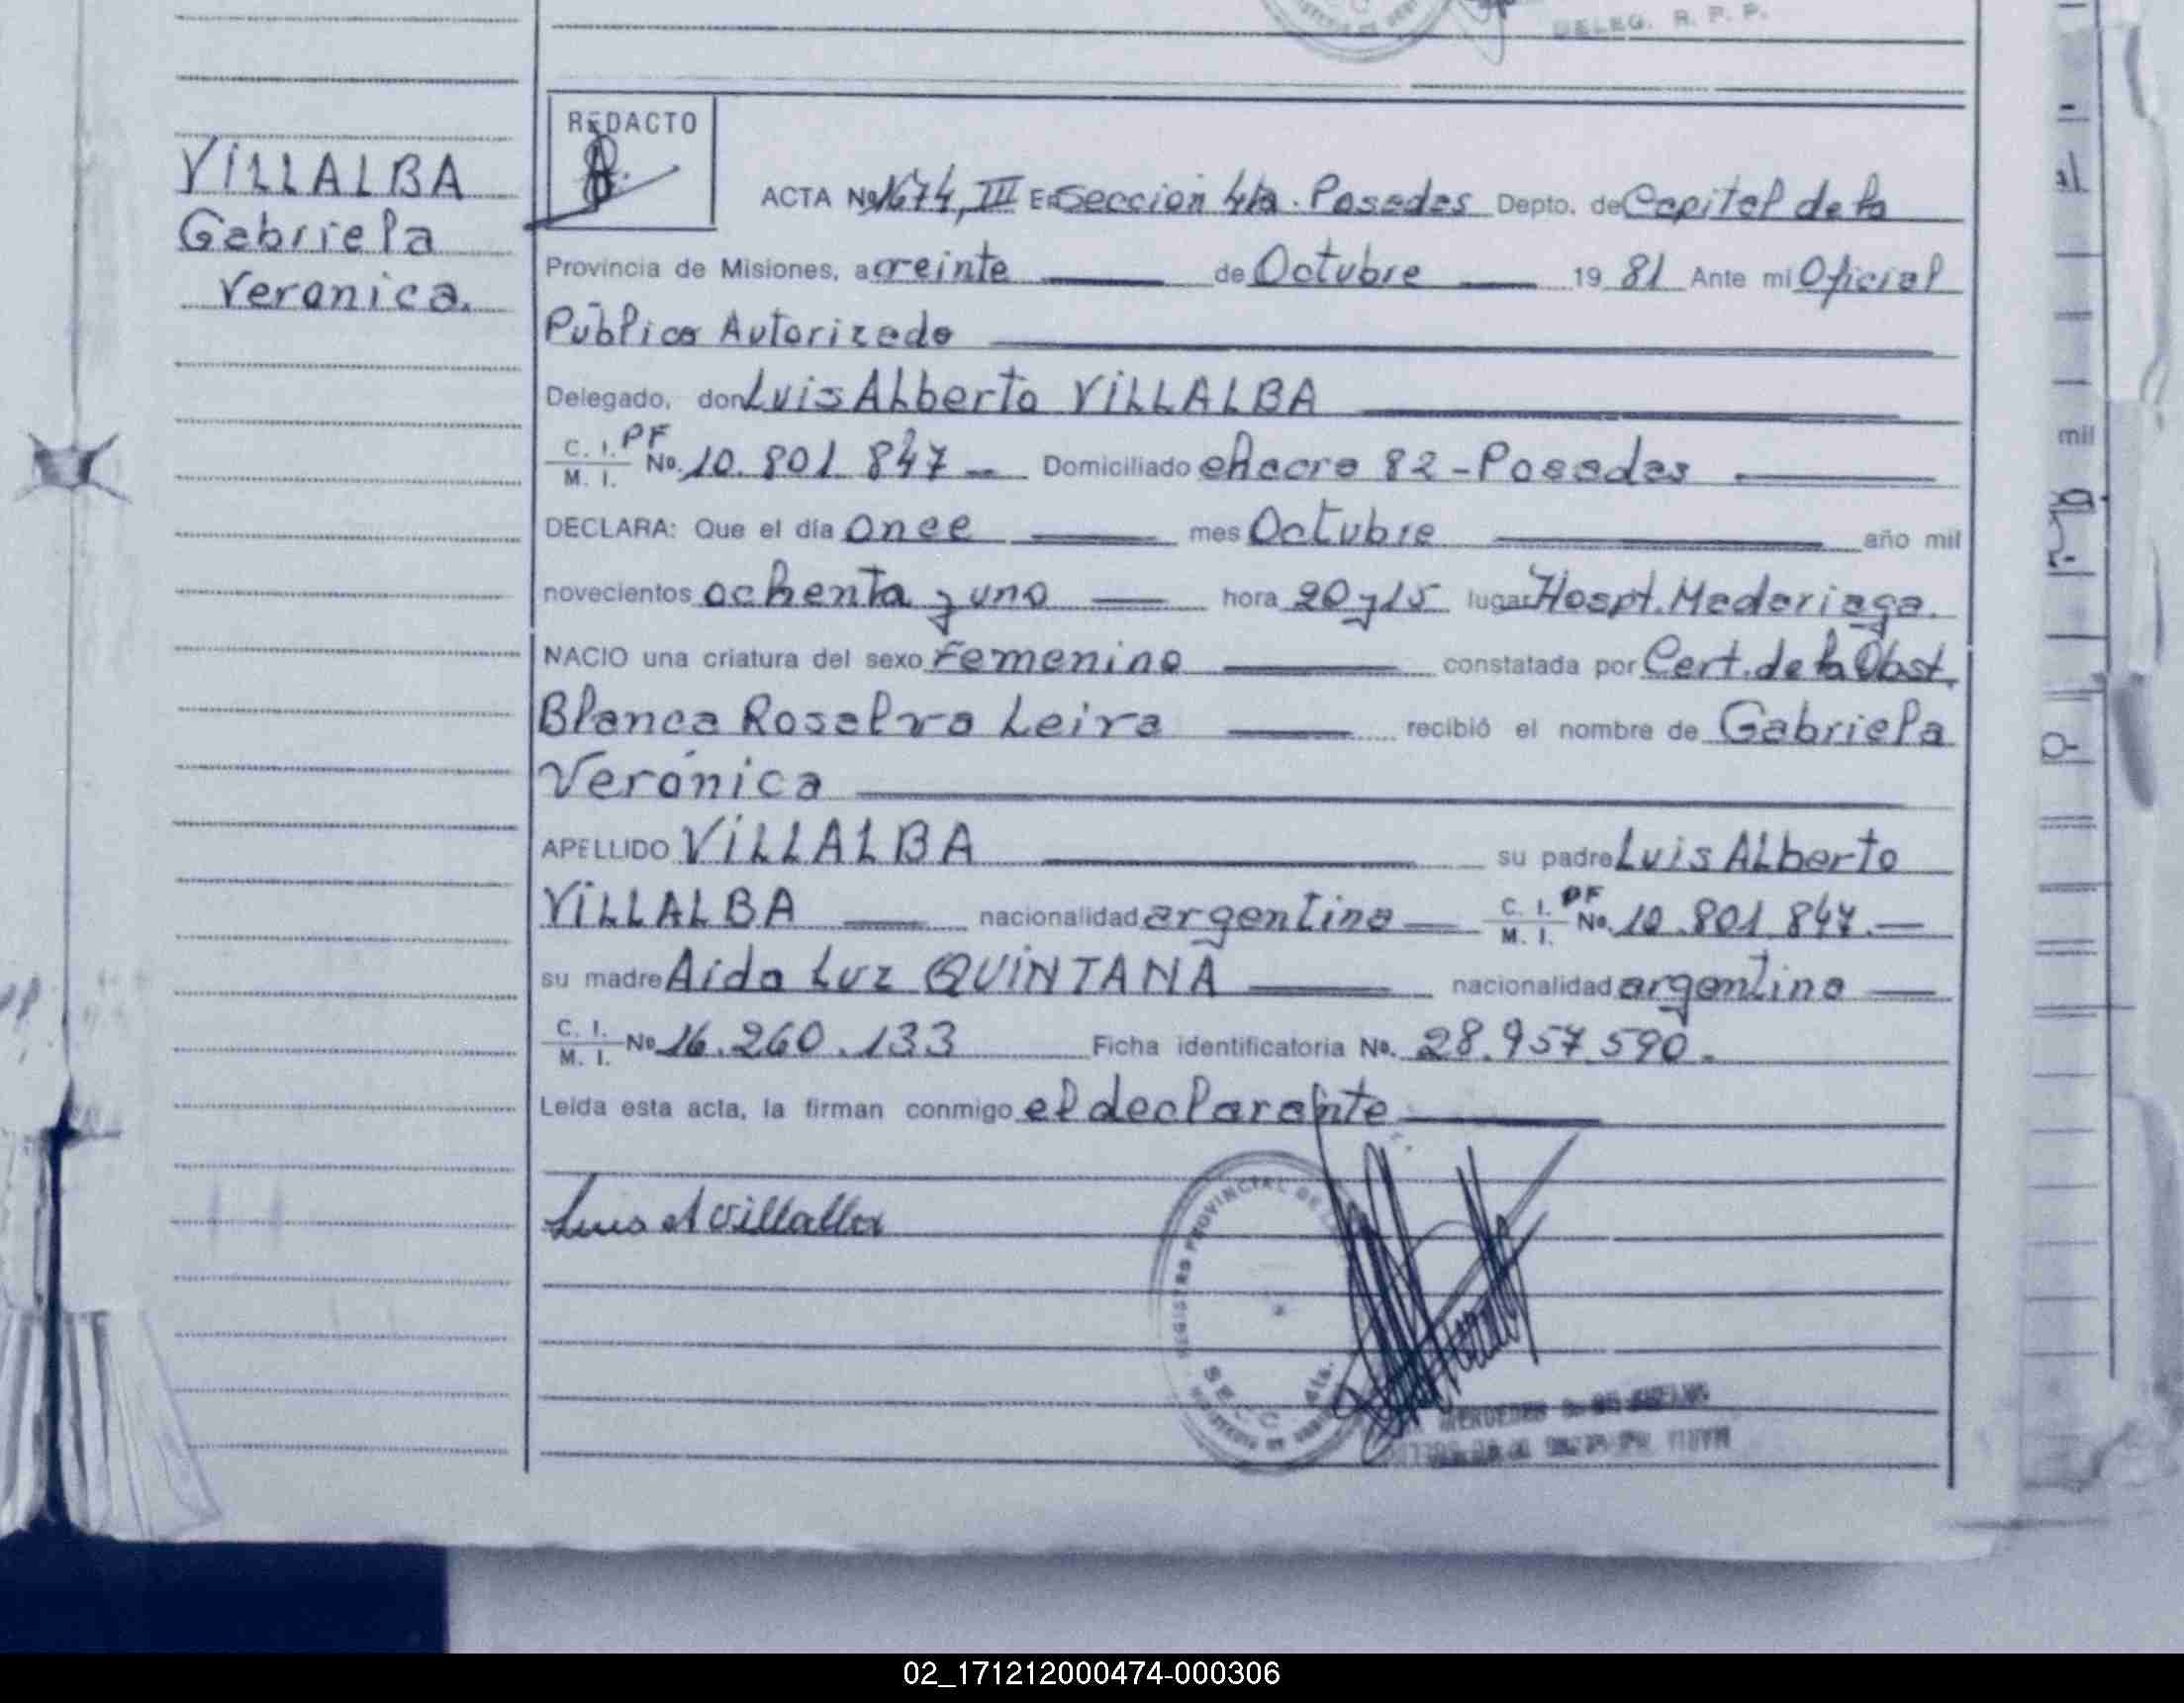 DELEG. R. P. P.
REDACTO
VILLALBA
Gabriela
Veronica.
ACTA No 1674, III En Sección 4ta. Posadas Depto. de Capital de la
Provincia de Misiones, a treinte de Octubre 19 81 Ante mi Oficial
Público Autorizado
Delegado, don Luis Alberto VILLALBA
C. I. PF
M. I. No. 10.801.847 Domiciliado chacra 82 - Posadas
DECLARA: Que el día once mes Octubre año mil
novecientos ochenta y uno hora 20 y 15 lugar Hospt. Madariaga.
NACIO una criatura del sexo Femenino constatada por Cert. de la Obst.
Blanca Rosalva Leiva recibió el nombre de Gabriela
Verónica
APELLIDO VILLALBA su padre Luis Alberto
VILLALBA nacionalidad argentina C. I. PF M. I. No. 10.801.847.
su madre Aida Luz QUINTANA nacionalidad argentina
C. I. M. I. No 16.260.133 Ficha identificatoria No. 28.957.590.
Leida esta acta, la firman conmigo el declarante
Luis A Villalba
REGISTRO PROVINCIAL DE
SECC 4ta.
mil
02_171212000474-000306